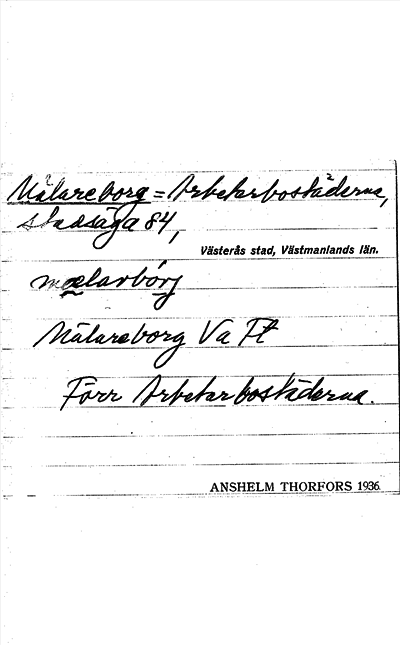 Mälareborg = Arbetarbostäderna,
stadsäga 84,
Västerås stad, Västmanlands län.
mælarbórj
Mälareborg Va Ft
Förr Arbetarbostäderna.
ANSHELM THORFORS 1936.